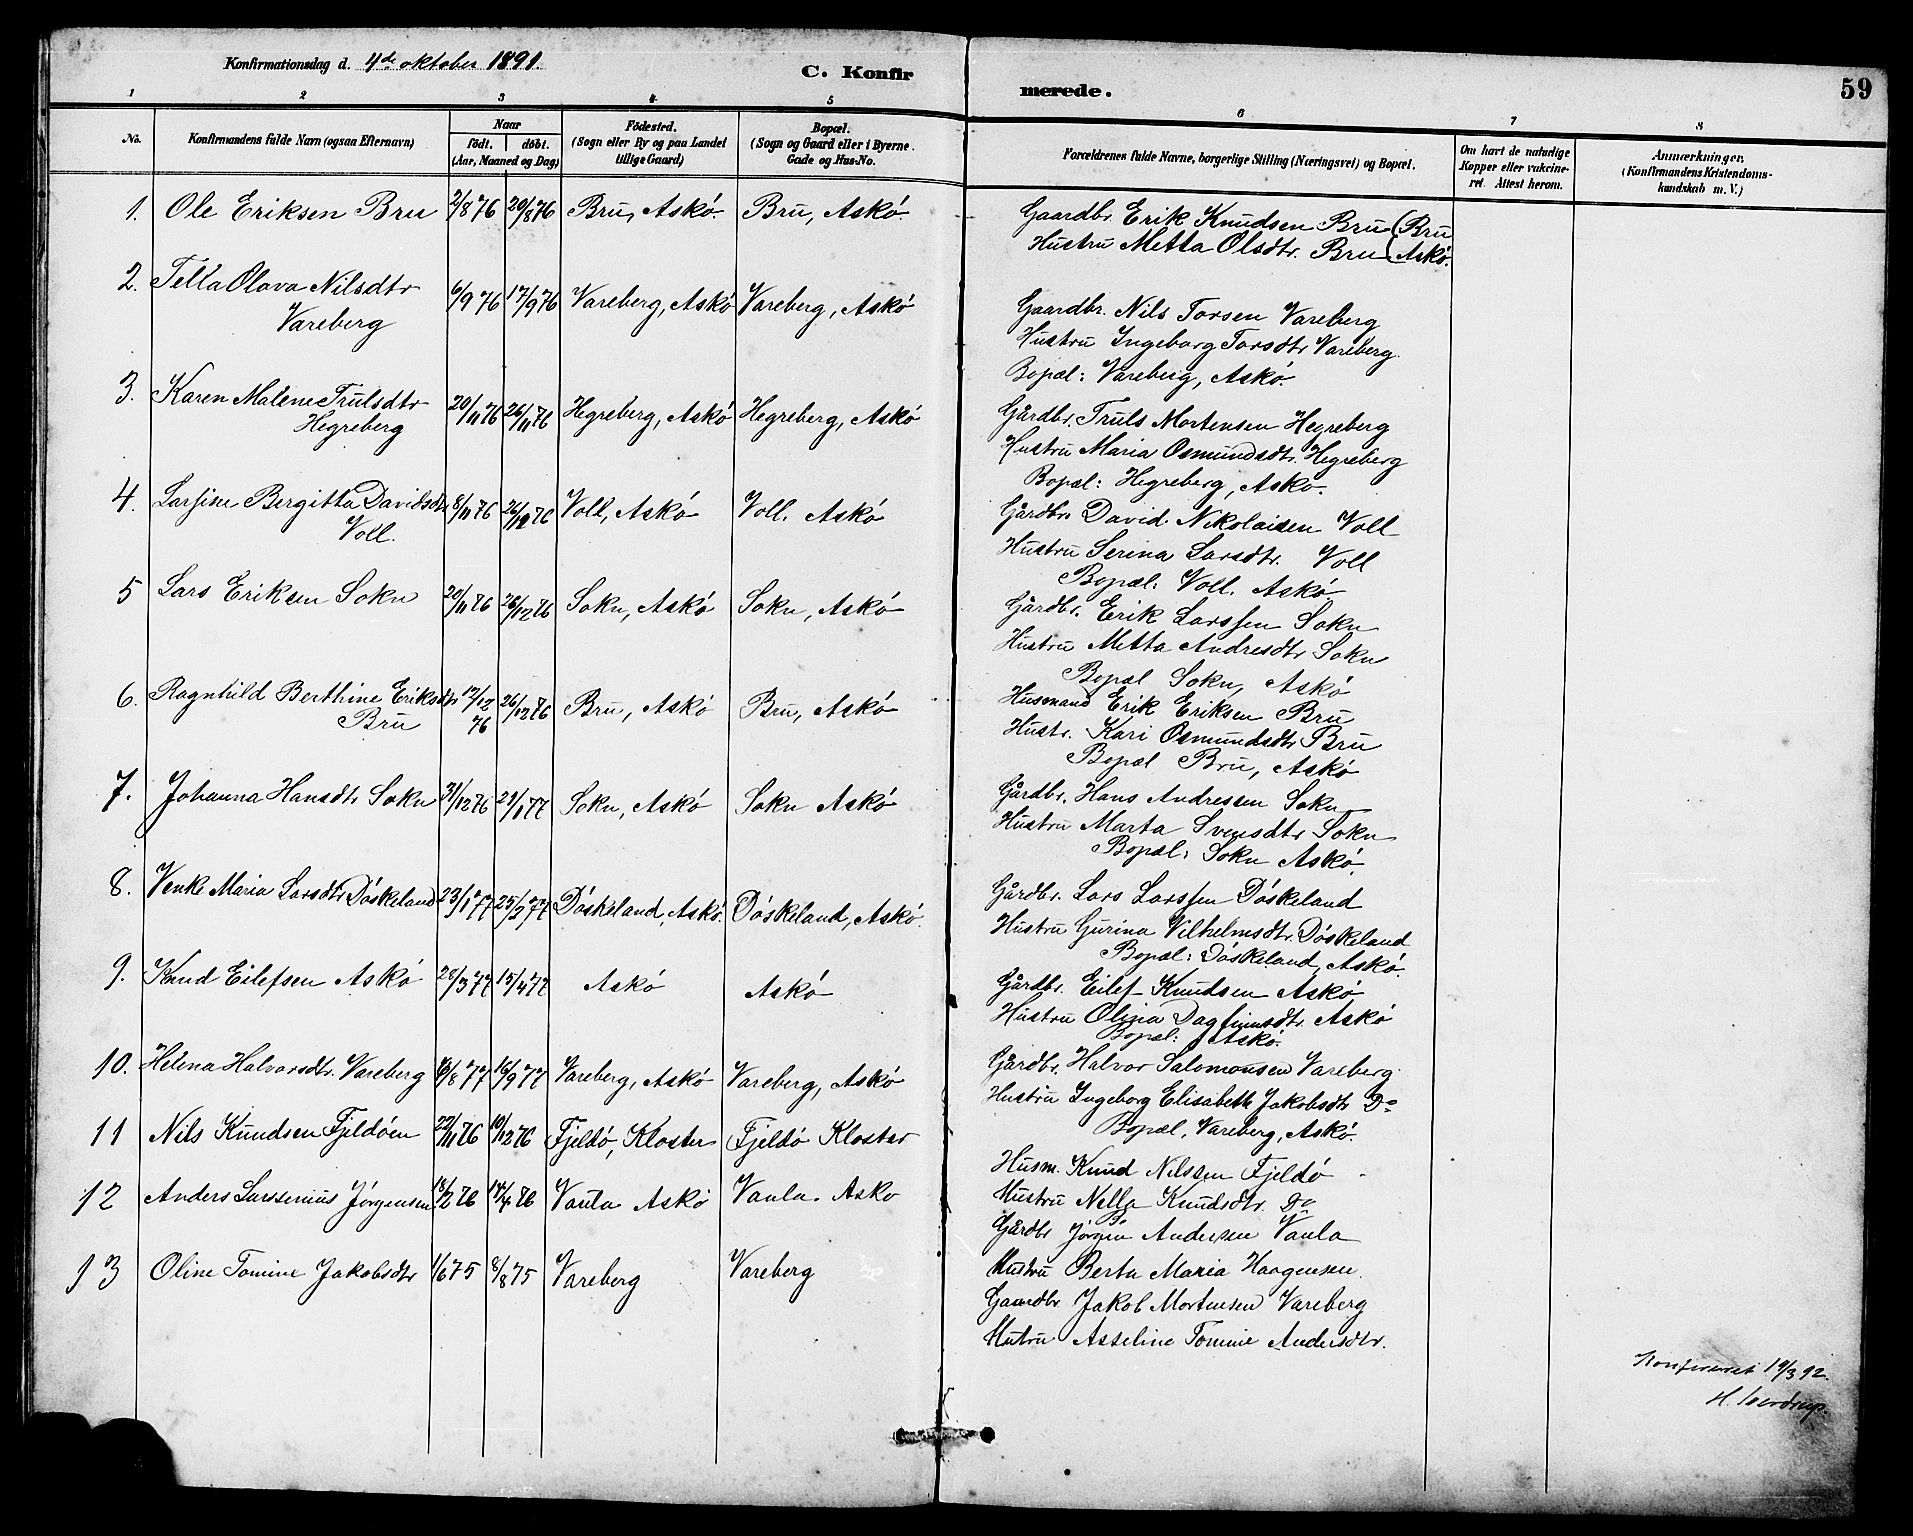 Konfirmationsdag d. 4de oktober 1891.
C. Konfir
merede.
59
1 2 3 4 5 6 7 8
No.
Konfirmandens fulde Navn (ogsaa Efternavn)
Naar
födt. döbt.
(Aar, Maaned og Dag)
Födested.
(Sogn eller By og paa Landet
tillige Gaard)
Bopæl.
(Sogn og Gaard eller i Byerne
Gade og Hus-No.
Forældrenes fulde Navne, borgerlige Stilling (Næringsvei) og Bopæl.
Om havt de naturlige
Kopper eller vakcine-
ret. Attest herom.
Anmærkninger.
(Konfirmandens Kristendoms-
kundskab m. V.)
1. Ole Eriksen Bru 2/8 76 20/8 76 Bru, Askö. Bru, Askö.
Gaardbr. Erik Knudsen Bru (Bru
Hustru Metta Olsdtr. Bru (Askö.
2. Tella Olava Nilsdtr
Vareberg
6/9 76 17/9 76 Vareberg, Askö Vareberg, Askö
Gaardbr. Nils Torsen Vareberg
Hustru Ingeborg Torsdtr Vareberg.
Bopæl: Vareberg, Askö.
3. Karen Malene Trulsdtr
Hegreberg
20/11 76 26/11 76 Hegreberg, Askö Hegreberg, Askö
Gårdbr. Truls Mortensen Hegreberg
Hustru Maria Osmundsdtr. Hegreberg
Bopæl: Hegreberg, Askö.
4. Larsine Bergitta Davidsdtr
Voll.
8/11 76 26/12 76 Voll, Askö Voll. Askö
Gårdbr. David Nikolaisen Voll
Hustru Serina Larsdtr. Voll
Bopæl: Voll. Askö.
5 Lars Eriksen Sokn 20/11 76 26/12 76 Sokn, Askö Sokn, Askö
Gårdbr. Erik Larssen Sokn
Hustru Metta Andresdtr Sokn
Bopæl Sokn, Askö
6. Ragnhild Berthine Eriksdtr
Bru
12/12 76 26/12 76 Bru, Askö Bru, Askö
Husmand Erik Eriksen Bru
Hustr. Kari Osmundsdtr Bru
Bopæl Bru, Askö
7. Johanna Hansdtr Sokn 31/12 76 21/1 77 Sokn, Askö Sokn Askö
Gårdbr. Hans Andressen Sokn
Hustru Marta Svensdtr Sokn
Bopæl: Sokn Askö.
8. Venke Maria Larsdtr Döskeland 23/1 77 25/2 77 Döskeland, Askö. Döskeland, Askö.
Gårdbr. Lars Larssen Döskeland
Hustru Gurina Vilhelmsdtr. Döskeland
Bopæl: Döskeland, Askö.
9. Knud Eilefsen Askö 28/3 77 15/4 77 Askö Askö
Gårdbr. Eilef Knudsen Askö
Hustru Olina Dagfinnsdtr. Askö
Bopæl: Askö.
10. Helena Halvorsdtr. Vareberg 6/8 77 16/9 77 Vareberg, Askö Vareberg, Askö
Gårdbr. Halvor Salomonsen Vareberg.
Hustru Ingeborg Elisabeth Jakobsdtr Do
Bopæl, Vareberg, Askö.
11 Nils Knudsen Fjeldöen 22/11 76 10/12 76 Fjeldö, Kloster Fjeldö Kloster
Husm. Knud Nilssen Fjeldö
Hustru Nella Knudsdtr. Do
12 Anders Larssenius Jörgensen 18/2 76 17/4 76 Vaula Askö Vaula. Askö
Gårdbr Jörgen Andersen Vaula
Hustru Berta Maria Haagensen.
13 Oline Tomine Jakobsdtr 1/6 75 8/8 75 Vareberg Vareberg
Gaardbr. Jakob Mortensen Vareberg
Hutru Asseline Tomine Andersdtr.
Konfereret 19/3 92.